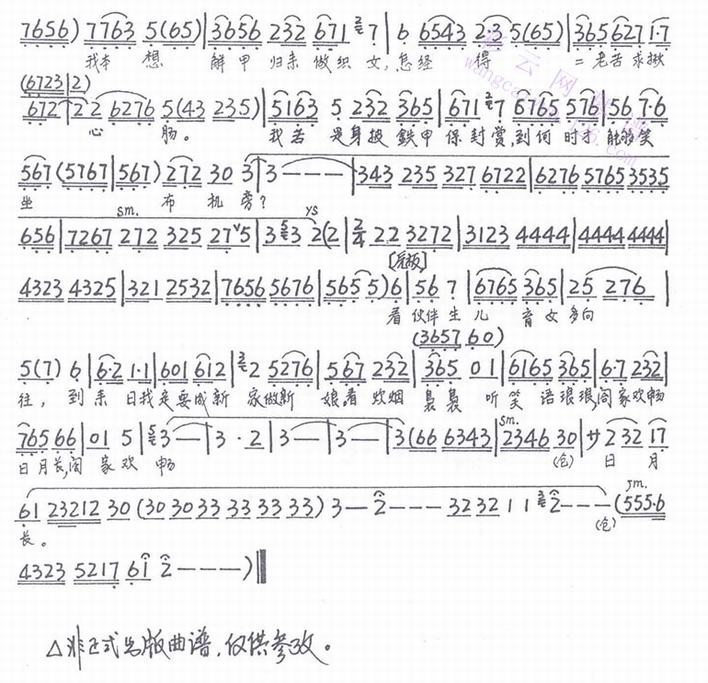 7656) 7763 5(65)|3656 232 671 7|6 6543 2·3 5(65)|365 627 1·7
我本 想 解甲 归来 做织 女,怎经 得 二老苦求揪
(6723|2)
672|22 6276 5(43 235)|5163 5 232 365|671 7 6765 576|567·6
心 肠。 我若 是身披 鉄甲 保封赏,到何 时才 能够笑
567(5767|567)272 30 3|3———|343 235 327 6722|6276 5765 3535
坐 布 机旁?
sm. ys
656|7267 272 325 27 5|3 3 2(2|2/4 22 3272|3123 4444|4444 4444|
4323 4325|321 2532|7656 5676|565 5)6|56 7|6765 365|25 276|
看 伙伴 生 儿 育 女 多向
(3657 60)
5(7) 6|6·2 1·1|601 612|2 5276|567 232|365 01|6165 365|6·7 232|
往, 到来 日我是要成新 家做新 娘,看 炊烟 袅袅 听 笑 语 琅琅,阖家欢畅
765 66|01 5|3—|3·2|3—|3—|3(66 6343|2346 30|サ2 32 17
sm.
日月长,阖 家 欢 畅 (仓) 日 月
61 23212 30(30 30 33 33 33 33)3—2———3232 11 2———(555·6
长。 (仓)
4323 5217 61 2———)
△非正式出版曲谱,仅供参考。